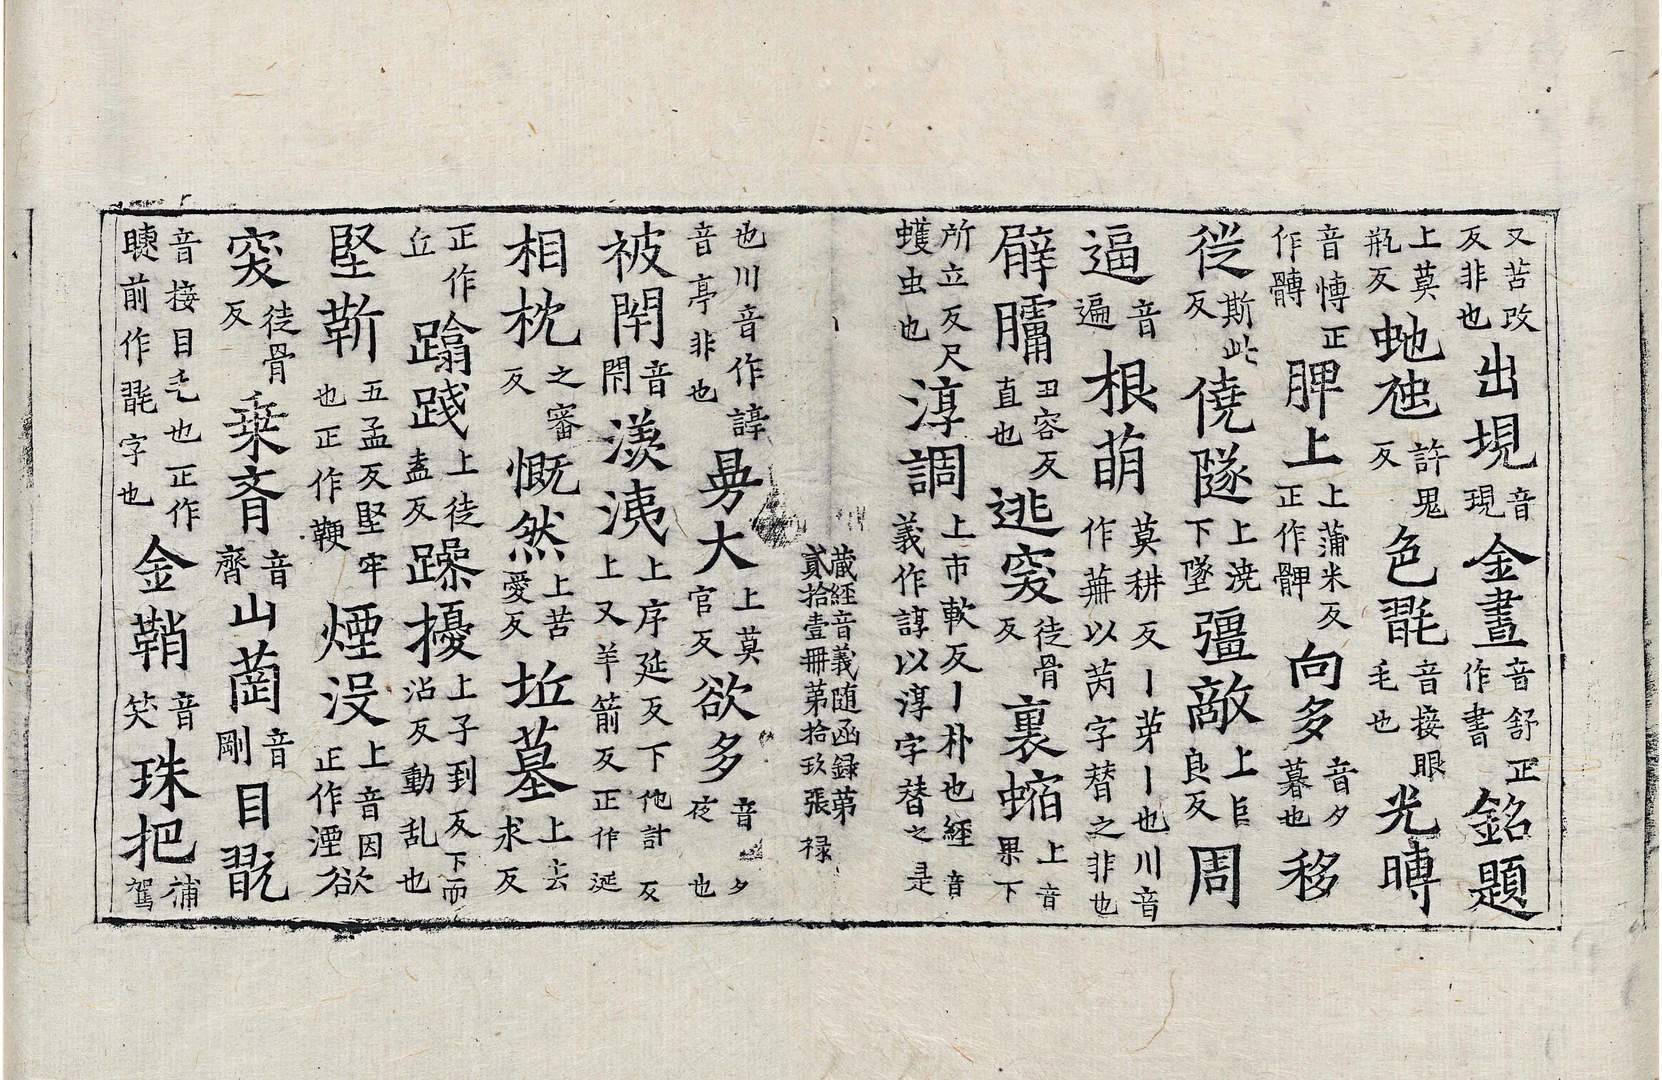 又苦改反非也出垷音現金晝音舒正作書銘題
上莫瓶反虵虺許鬼反色毾音接眼毛也光暷
音慱正作髆脾上上蒲米反正作髀向多音夕暮也移
徙斯此反僥隧上澆下墜彊敵上巨良反周
逼音遍根萌莫耕反丨芽丨也川音作蕪以茐字替之非也
䑀𦟛丑容反直也逃突徒骨反裏蜸上音果下
所立反尺蠖虫也淳調上市軟反丨朴也經音義作諄以淳字替之是
藏經音義随函録第貳拾壹冊第拾玖張 禄
也川音作諄音亭非也男大上莫官反欲多音夕夜也
被閇音閉羡洟上序延反下他計反上又羊箭反正作涎
相枕之審反慨然上苦愛反坵墓上去求反
正作丘蹹踐上徒盍反躁擾上子到反下而沼反動乱也
堅靳五孟反堅牢也正作鞕煙没上音因正作湮欲
突徒骨反乗斉音齊山䓳音剛目毾
音接目毛也正作䀹前作毾字也金鞘音笑珠把補駕